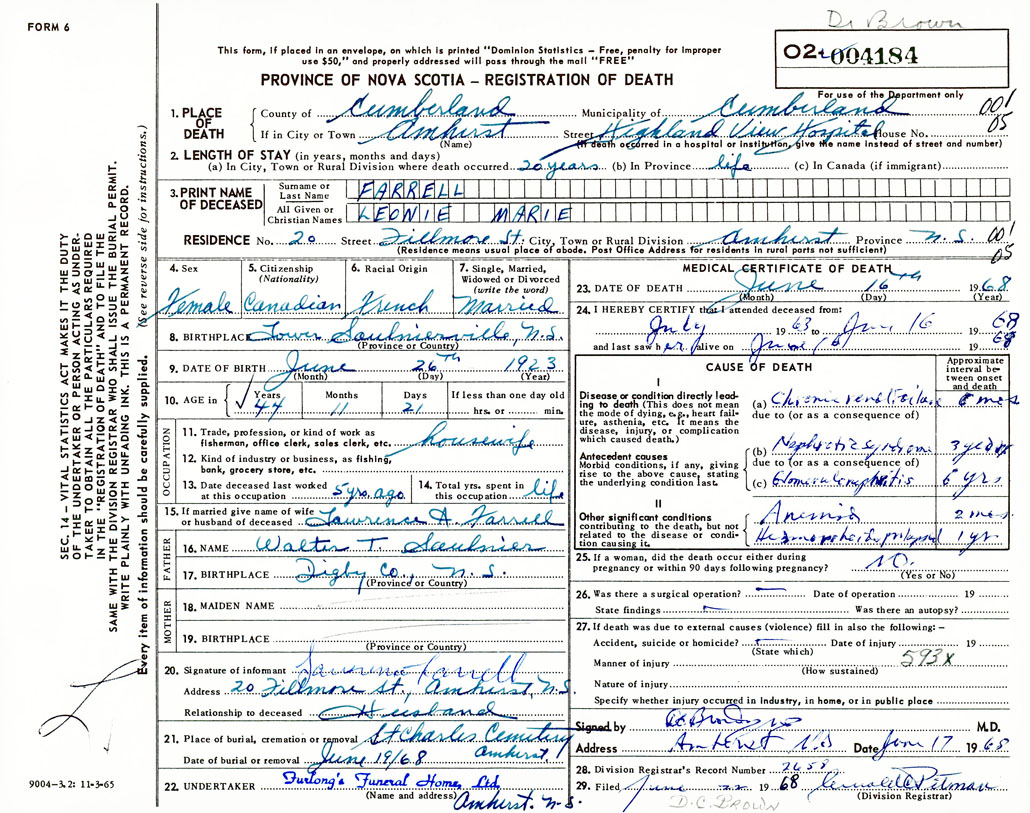 Dr Brown
FORM 6
This form, if placed in an envelope, on which is printed "Dominion Statistics – Free, penalty for improper
use $50," and properly addressed will pass through the mail "FREE"
PROVINCE OF NOVA SCOTIA – REGISTRATION OF DEATH
004184
For use of the Department only
001
05
1. PLACE OF DEATH
County of Cumberland Municipality of Cumberland
If in City or Town Amherst Street Highland View Hospital House No.
(Name) (If death occurred in a hospital or institution, give the name instead of street and number)
2. LENGTH OF STAY (in years, months and days)
(a) In City, Town or Rural Division where death occurred 20 years (b) In Province life (c) In Canada (if immigrant)
3. PRINT NAME OF DECEASED
Surname or Last Name FARRELL
All Given or Christian Names LEONIE MARIE
RESIDENCE No. 20 Street Fillmore St. City, Town or Rural Division Amherst Province N.S. 001
05
(Residence means usual place of abode. Post Office Address for residents in rural parts not sufficient)
4. Sex Female
5. Citizenship (Nationality) Canadian
6. Racial Origin French
7. Single, Married, Widowed or Divorced (write the word) Married
8. BIRTHPLACE Lower Saulnierville, N.S.
(Province or Country)
9. DATE OF BIRTH June 26th 1923
(Month) (Day) (Year)
10. AGE in Years 44 Months 11 Days 21 If less than one day old hrs. or min.
OCCUPATION
11. Trade, profession, or kind of work as
fisherman, office clerk, sales clerk, etc. housewife
12. Kind of industry or business, as fishing,
bank, grocery store, etc.
13. Date deceased last worked at this occupation 5 yrs. ago
14. Total yrs. spent in this occupation life
15. If married give name of wife
or husband of deceased Lawrence A. Farrell
FATHER
16. NAME Walter T. Saulnier
17. BIRTHPLACE Digby Co., N.S.
(Province or Country)
MOTHER
18. MAIDEN NAME
19. BIRTHPLACE
(Province or Country)
20. Signature of informant Lawrence Farrell
Address 20 Fillmore St., Amherst, N.S.
Relationship to deceased Husband
21. Place of burial, cremation or removal St Charles Cemetery
Date of burial or removal June 19/68 Amherst,
22. UNDERTAKER Furlong's Funeral Home, Ltd.
(Name and address) Amherst. N.S.
MEDICAL CERTIFICATE OF DEATH
23. DATE OF DEATH June 16th 1968
(Month) (Day) (Year)
24. I HEREBY CERTIFY that I attended deceased from:
July 1963 to June 16 1968
and last saw her alive on June 16 1968
CAUSE OF DEATH
Approximate interval between onset and death
I
Disease or condition directly leading to death (This does not mean the mode of dying, e.g., heart failure, asthenia, etc. It means the disease, injury, or complication which caused death.)
(a) Chronic renal failure
due to (or as a consequence of)
Antecedent causes
Morbid conditions, if any, giving rise to the above cause, stating the underlying condition last.
(b) Nephrotic syndrome 3 years
due to (or as a consequence of)
(c) Glomerulonephritis 6 yrs
II
Other significant conditions contributing to the death, but not related to the disease or condition causing it.
Anemia 2 mos.
1 yr
25. If a woman, did the death occur either during
pregnancy or within 90 days following pregnancy? NO.
(Yes or No)
26. Was there a surgical operation? Date of operation 19
State findings Was there an autopsy?
27. If death was due to external causes (violence) fill in also the following: –
Accident, suicide or homicide? Date of injury 19
(State which)
Manner of injury 593X
(How sustained)
Nature of injury
Specify whether injury occurred in industry, in home, or in public place
Signed by M.D.
Address Amherst N.S Date June 17 1968
28. Division Registrar's Record Number 2658
29. Filed June 22 1968
(Division Registrar)
D.C. BROWN
SEC. 14 – VITAL STATISTICS ACT MAKES IT THE DUTY
OF THE UNDERTAKER OR PERSON ACTING AS UNDER-
TAKER TO OBTAIN ALL THE PARTICULARS REQUIRED
IN THE "REGISTRATION OF DEATH" AND TO FILE THE
SAME WITH THE DIVISION REGISTRAR WHO SHALL ISSUE THE BURIAL PERMIT.
WRITE PLAINLY WITH UNFADING INK. THIS IS A PERMANENT RECORD.
Every item of information should be carefully supplied. (See reverse side for instructions.)
9004–3.2: 11-3-65